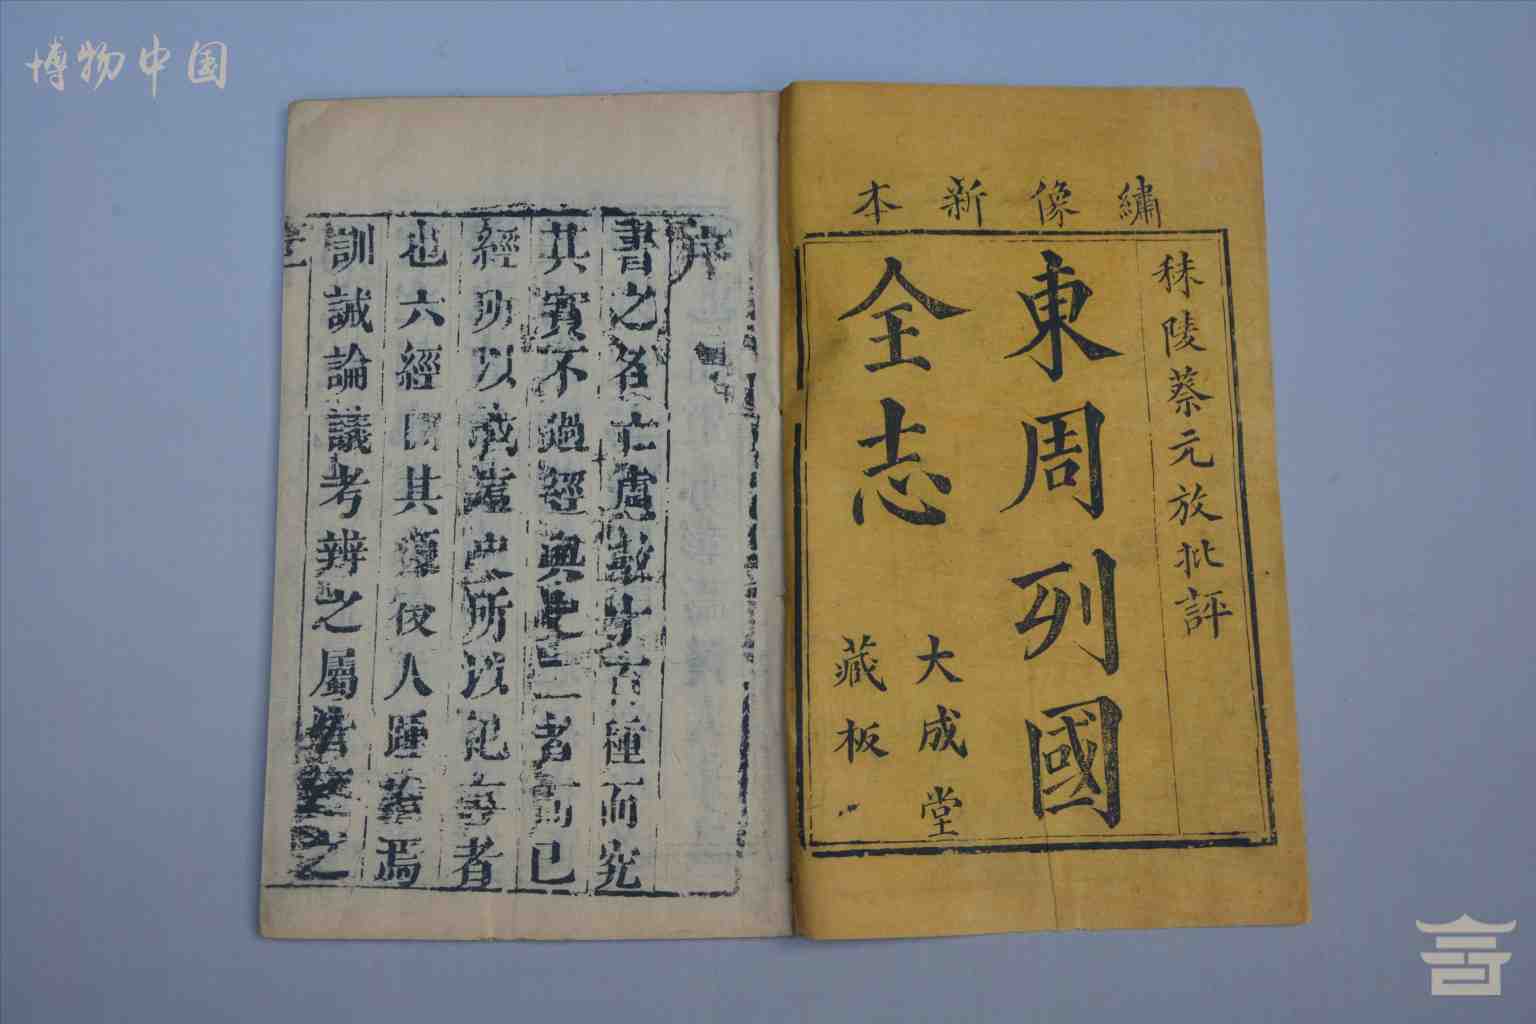 博物中国
繡像新本
秣陵蔡元放批評
東周列國
全志
大成堂
藏板
序
書之名亡慮數十百種而究
其實不過經與史二者而已
經所以載道史所以紀事者
也六經開其源後人踵焉
訓誡論議考辨之屬皆經之